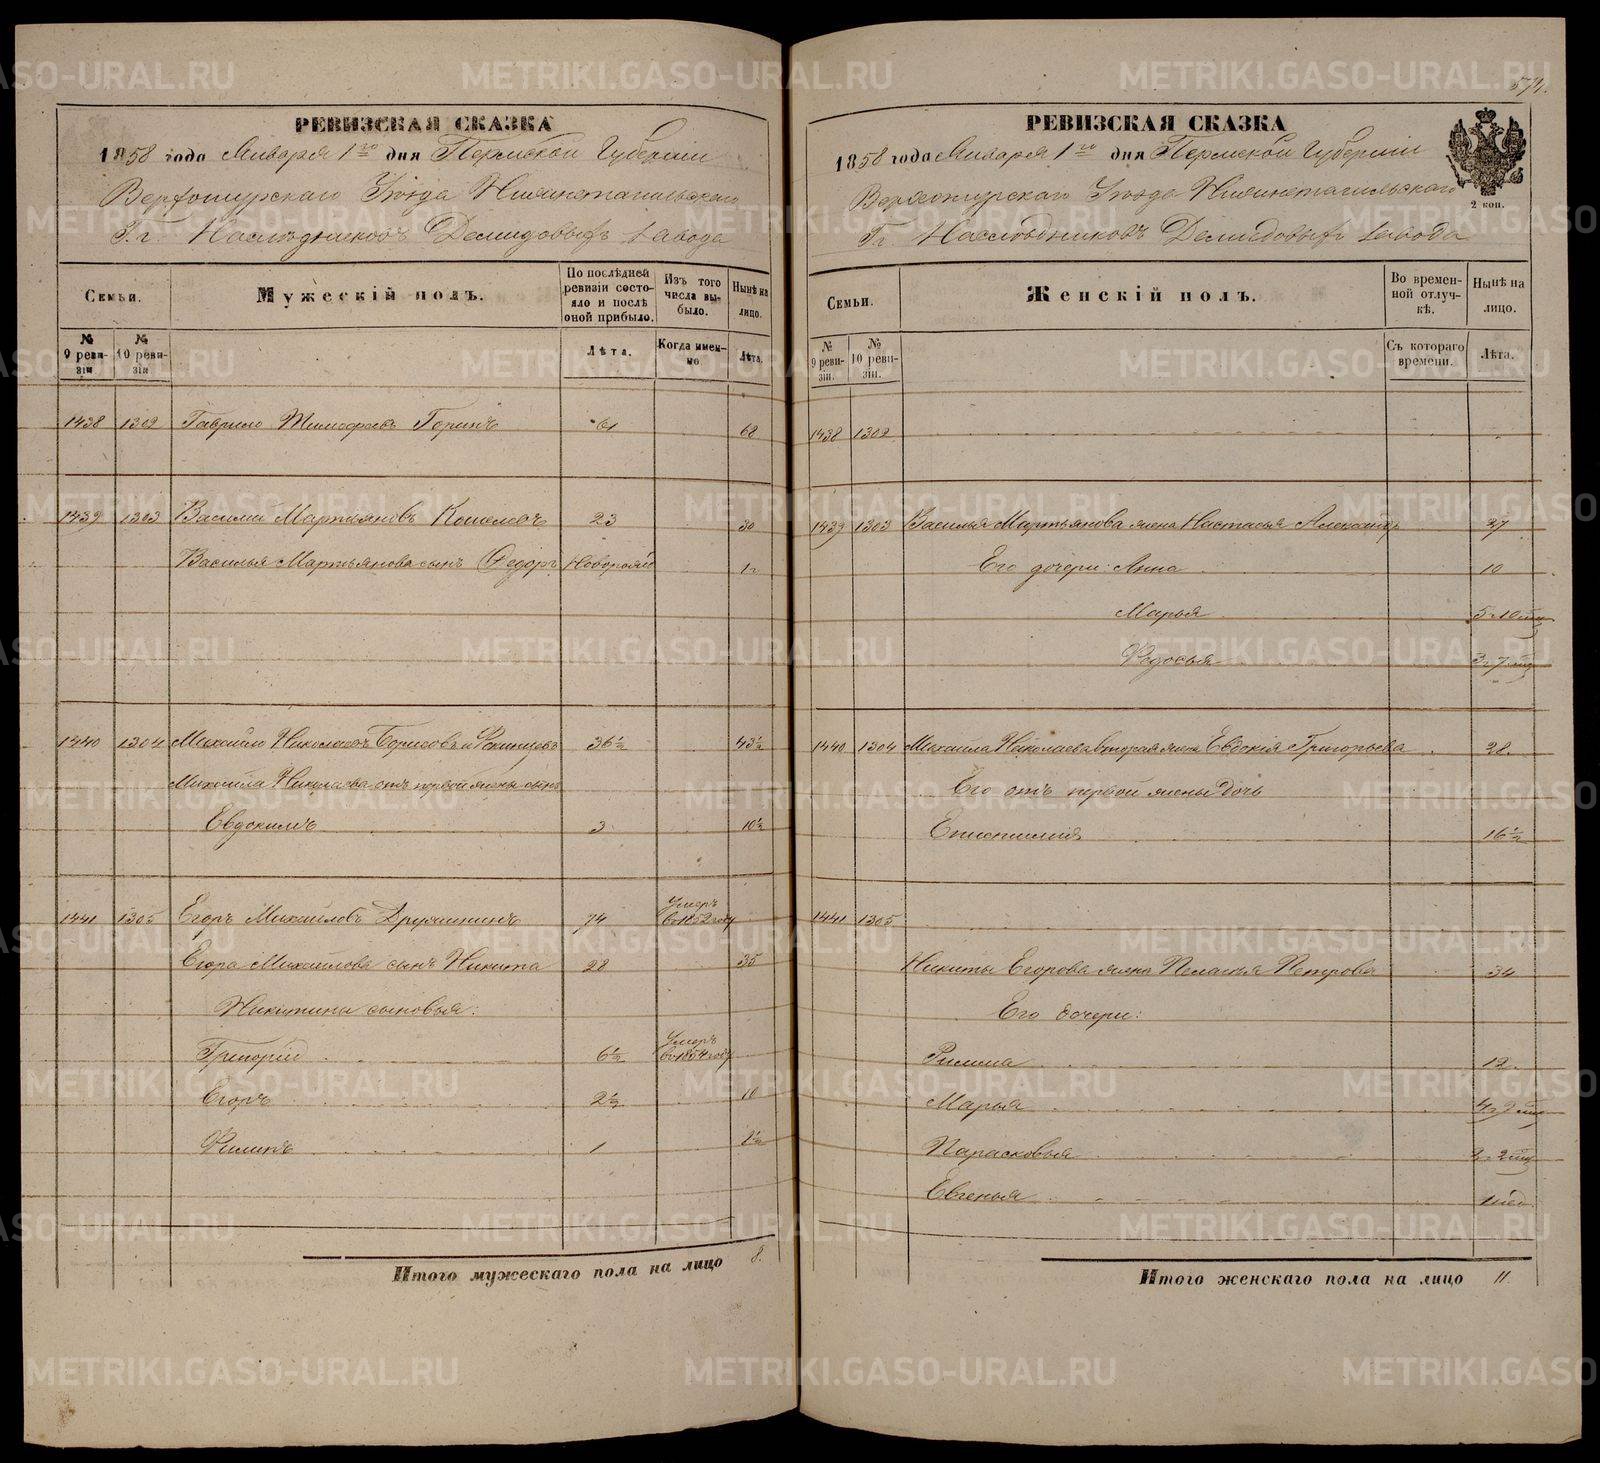 574.
РЕВИЗСКАЯ СКАЗКА
1858 года Января 1го дня Пермской Губернии
Верхотурскаго Уѣзда Нижнетагильскаго
Г.г. Наслѣдниковъ Демидовыхъ завода
Семьи.
Мужескій полъ.
По послѣдней ревизіи состояло и послѣ оной прибыло.
Изъ того числа выбыло.
Нынѣ на лицо.
№ 9 ревизіи
№ 10 ревизіи
Лѣта.
Когда именно
Лѣта.
1438 1302 Гаврило Тимофеевъ Горинъ 61 68
1439 1303 Василий Мартьяновъ Кошелевъ 23 30
Василья Мартьянова сынъ Федоръ Новорожд 1 г
1440 1304 Михайло Николаевъ Борисовъ и 36½ 43½
Михайла Николаева отъ первой жены сынъ
Евдокимъ 3 10½
1441 1305 Егоръ Михайловъ 74 Умеръ в 1852 году
Егора Михайлова сынъ Никита 28 35
Никитины сыновья:
Григорій 6½ Умеръ в 1854 году
Егоръ 2½ 10
Филипъ 1 8½
Итого мужескаго пола на лицо 8.
РЕВИЗСКАЯ СКАЗКА
1858 года Января 1го дня Пермской Губернии
Верхотурскаго Уѣзда Нижнетагильскаго
2 коп.
Гг. Наслѣдниковъ Демидовыхъ завода
Семьи.
Женскій полъ.
Во временной отлучкѣ.
Нынѣ на лицо.
№ 9 ревизіи.
№ 10 ревизіи.
Съ котораго времени.
Лѣта.
1438 1302
1439 1303 Василья Мартьянова жена Настасья Александр 37
Его дочери: Анна 10
Марья 5 г 10 мц
Федосья 3 г 7 мц
1440 1304 Михайла Николаева вторая жена Евдокія Григорьева 28.
Его отъ первой жены дочь
Епистимия 16½
1441 1305
Никиты Егорова жена Пелагья Петрова 34
Его дочери:
12.
Марья 4 г 9 мц
Парасковья 2 мц
Евгенья 1 нед
Итого женскаго пола на лицо 11
METRIKI.GASO-URAL.RU